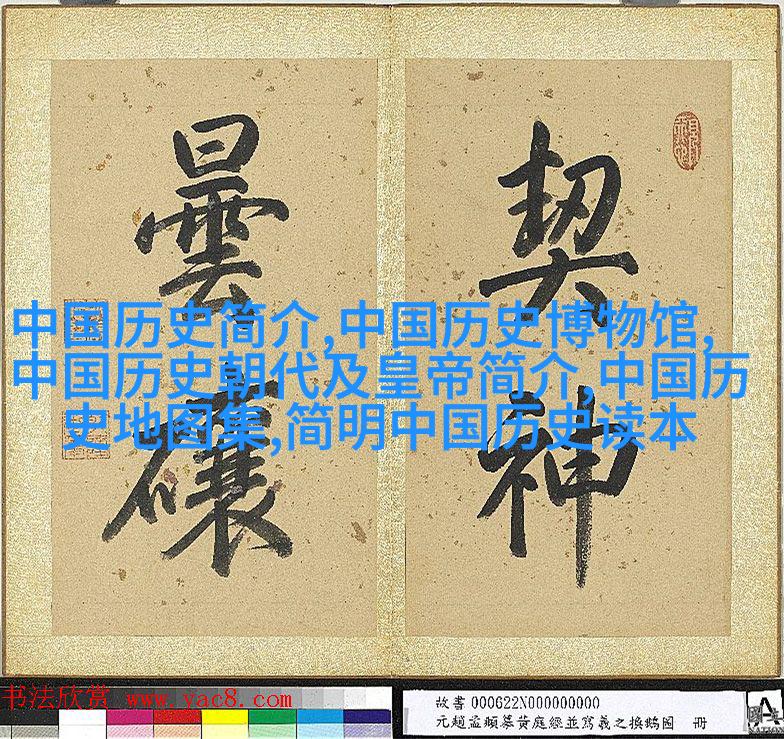 契神
曇
中国历史简介,中国历史博物馆,
中国历史朝代及皇帝简介,中国历
史地图集,简明中国历史读本
书法欣赏 www.yac8.com
故書000622N000000000
元趙孟頫摹黃庭經並寫羲之換鵝圖 冊